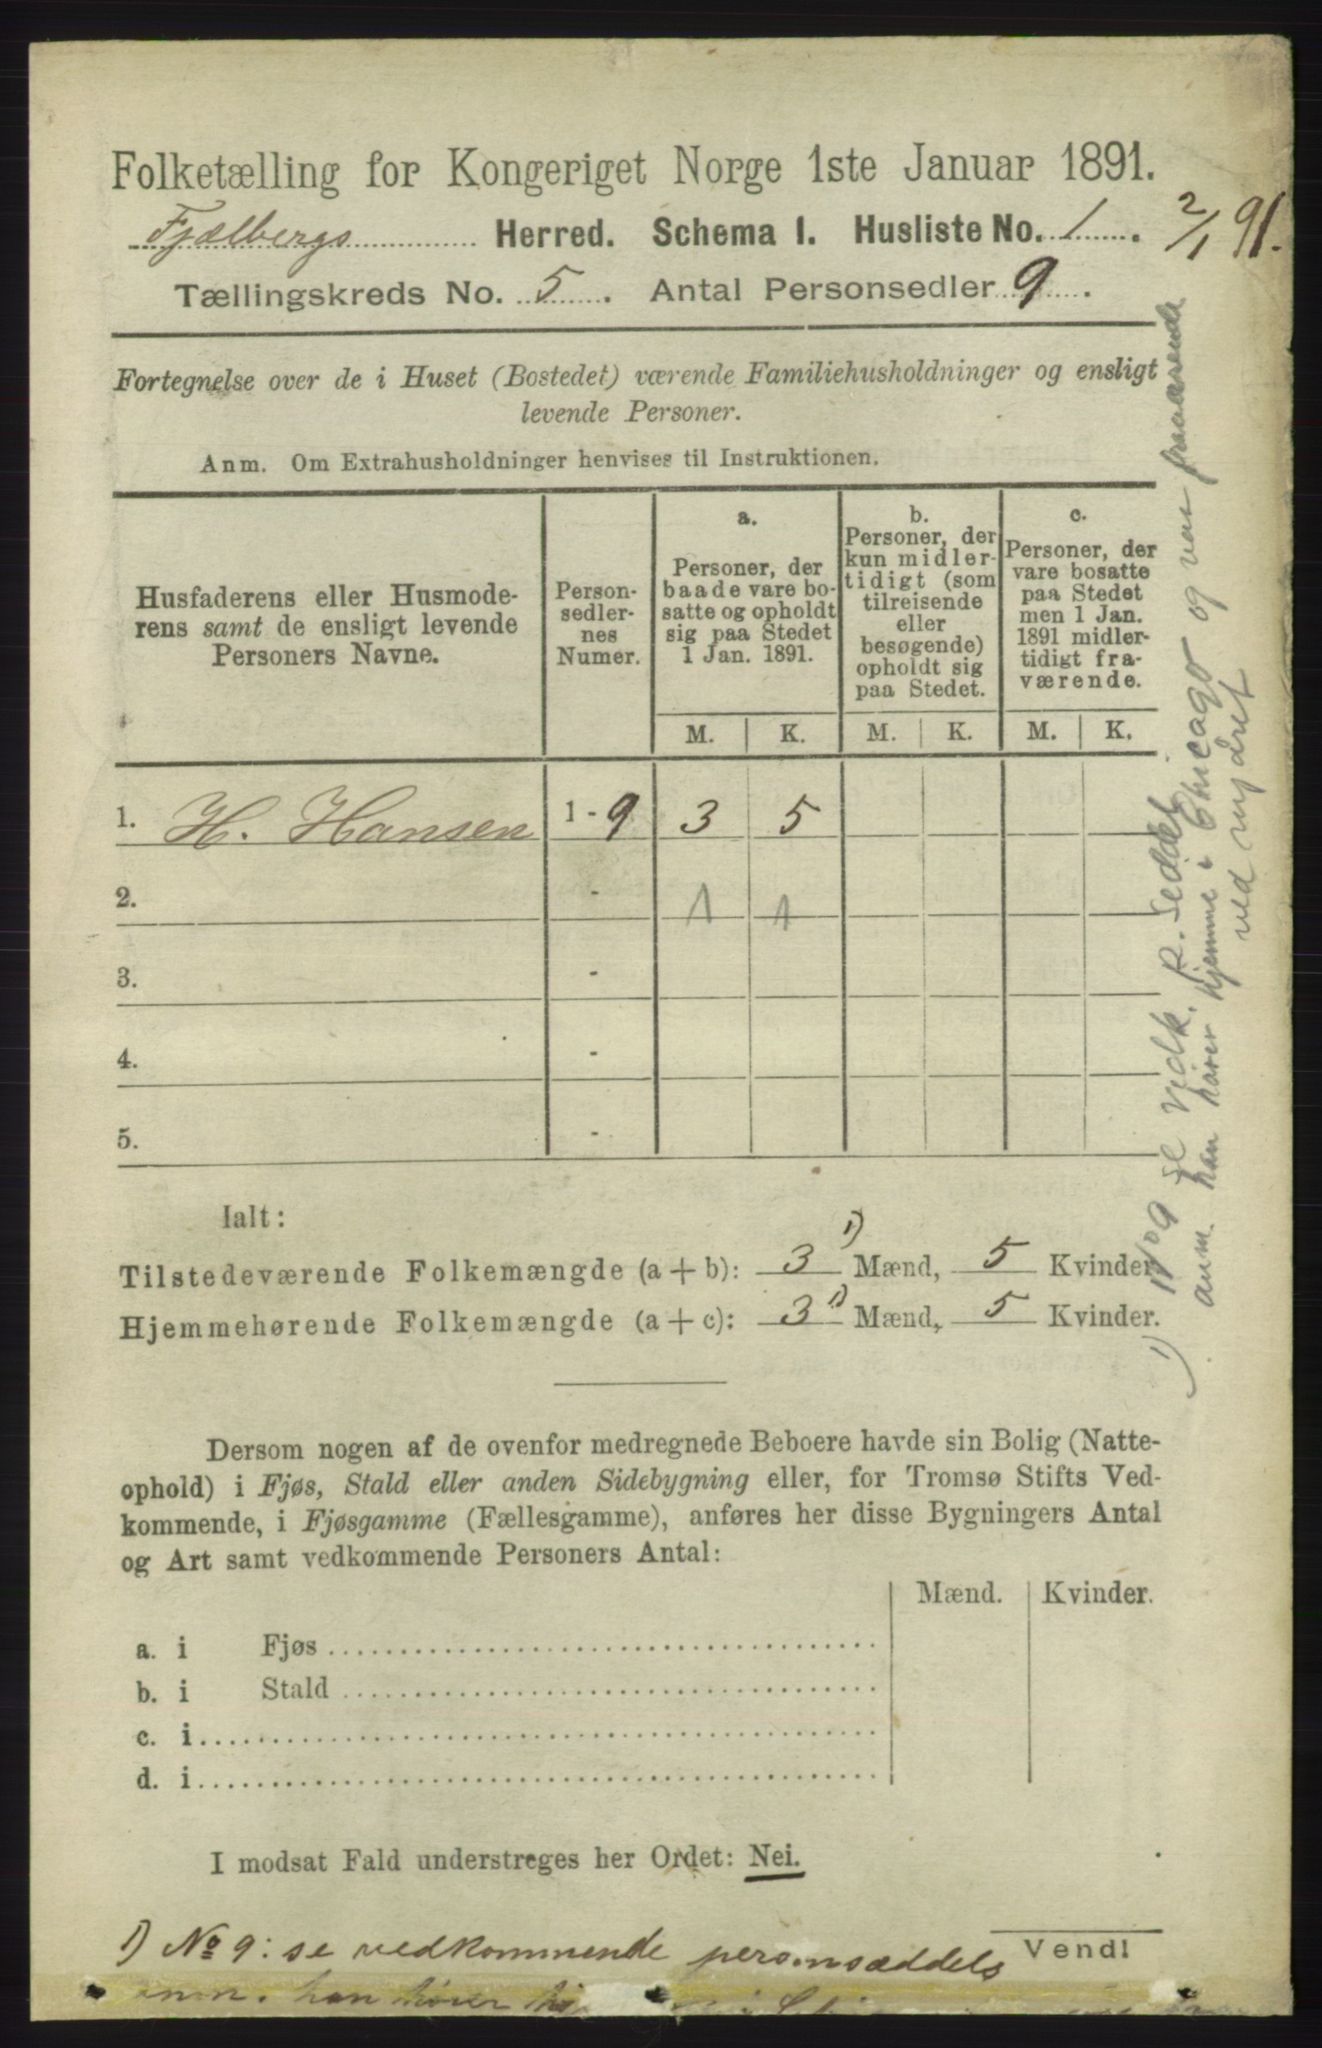 Folketælling for Kongeriget Norge 1ste Januar 1891.
Fjælbergs Herred. Schema I. Husliste No. 1. 2/1 91.
Tællingskreds No. 5. Antal Personsedler 9.
Fortegnelse over de i Huset (Bostedet) værende Familiehusholdninger og ensligt
levende Personer.
Anm. Om Extrahusholdninger henvises til Instruktionen.
Husfaderens eller Husmode-
rens samt de ensligt levende
Personers Navne.
Person-
sedler-
nes
Numer.
a.
Personer, der
baade vare bo-
satte og opholdt
sig paa Stedet
1 Jan. 1891.
b.
Personer, der
kun midler-
tidigt (som
tilreisende
eller
besøgende)
opholdt sig
paa Stedet.
c.
Personer, der
vare bosatte
paa Stedet
men 1 Jan.
1891 midler-
tidigt fra-
værende.
M. K. M. K. M. K.
1. H. Hansen 1 - 9 3 5
2. - 1 1
3. -
4. -
5. -
Ialt:
Tilstedeværende Folkemængde (a + b): 3 1) Mænd, 5 Kvinder.
Hjemmehørende Folkemængde (a + c): 3 1) Mænd, 5 Kvinder.
Dersom nogen af de ovenfor medregnede Beboere havde sin Bolig (Natte-
ophold) i Fjøs, Stald eller anden Sidebygning eller, for Tromsø Stifts Ved-
kommende, i Fjøsgamme (Fællesgamme), anføres her disse Bygningers Antal
og Art samt vedkommende Personers Antal:
Mænd. Kvinder.
a. i Fjøs
b. i Stald
c. i
d. i
I modsat Fald understreges her Ordet: Nei.
1) No 9: se vedkommende personsæddels
anm. han hører
Vend!
1) No 9 se vedk. p. seddel
anm. han hører hjemme i Chicago og var fraværende
ved nydret